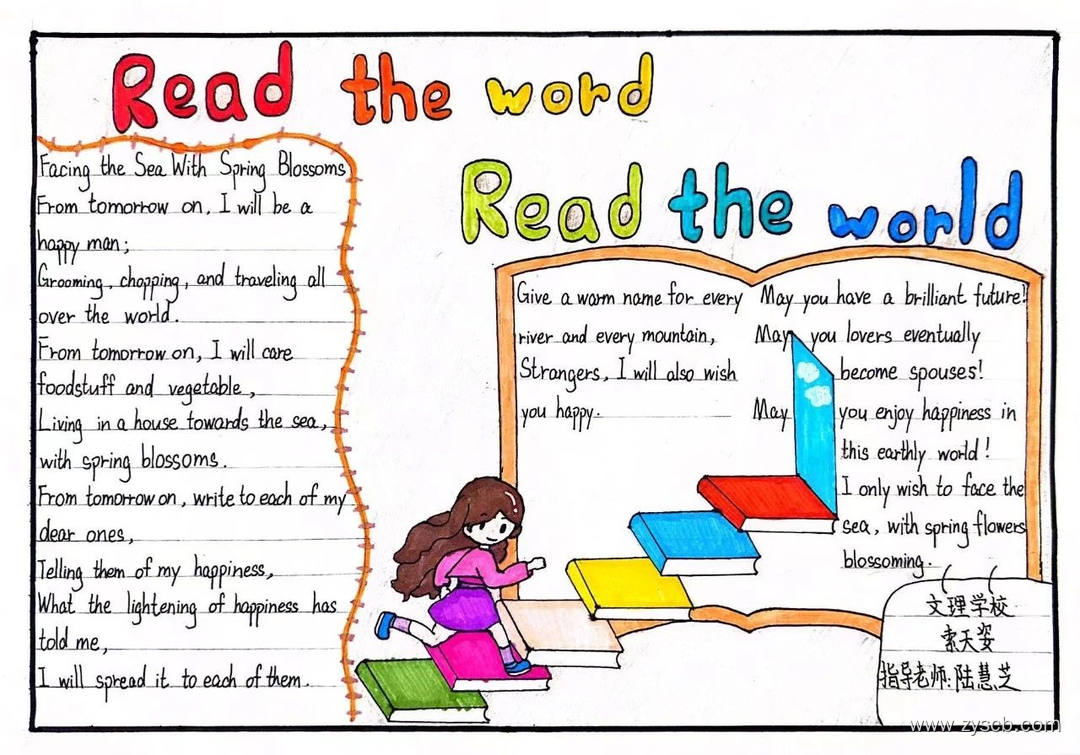 Read the word
Read the world
Facing the Sea With Spring Blossoms
From tomorrow on, I will be a
happy man;
Grooming, chopping, and traveling all
over the world.
From tomorrow on, I will care
foodstuff and vegetable,
Living in a house towards the sea,
with spring blossoms.
From tomorrow on, write to each of my
dear ones,
Telling them of my happiness,
What the lightening of happiness has
told me,
I will spread it to each of them.
Give a warm name for every
river and every mountain,
Strangers, I will also wish
you happy.
May you have a brilliant future!
May you lovers eventually
become spouses!
May you enjoy happiness in
this earthly world!
I only wish to face the
sea, with spring flowers
blossoming.
文理学校
索天姿
指导老师:陆慧芝
www.zyscb.com